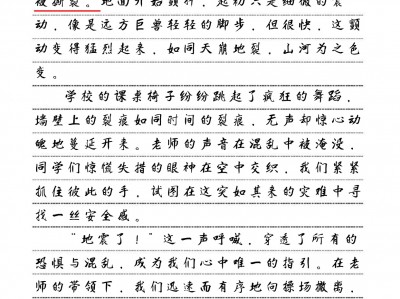 被撕裂。地面开始颤抖，起初只是细微的震
动，像是远方巨兽轻轻的脚步，但很快，这颤
动变得猛烈起来，如同天崩地裂，山河为之色
变。
学校的课桌椅子纷纷跳起了疯狂的舞蹈，
墙壁上的裂痕如同时间的裂痕，无声却惊心动
魄地蔓延开来。老师的声音在混乱中被淹没，
同学们惊慌失措的眼神在空中交织，我们紧紧
抓住彼此的手，试图在这突如其来的灾难中寻
找一丝安全感。
“地震了！”这一声呼喊，穿透了所有的
恐惧与混乱，成为我们心中唯一的指引。在老
师的带领下，我们迅速而有序地向操场撤离，